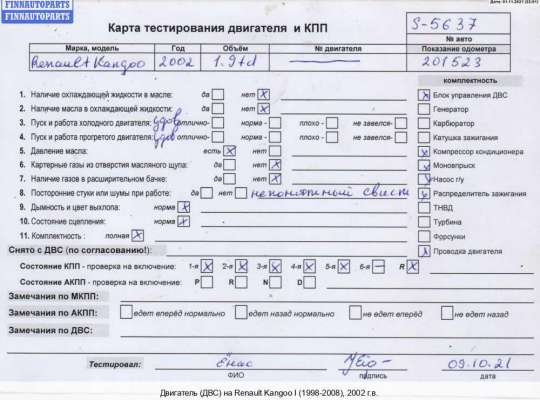 FINNAUTOPARTS
FINNAUTOPARTS
Карта тестирования двигателя и КПП
S-5637
№ авто
Марка, модель Год Объём № двигателя Показание одометра
Renault Kangoo 2002 1.9td — 201523
комплектность
1. Наличие охлаждающей жидкости в масле: да нет X
Блок управления ДВС
2. Наличие масла в охлаждающей жидкости: да нет X
Генератор
3. Пуск и работа холодного двигателя: удов отлично- норма - плохо - не завелся-
Карбюратор
4. Пуск и работа прогретого двигателя: удов отлично- норма - плохо - не завелся-
Катушка зажигания
5. Давление масла: есть X нет
Компрессор кондиционера
6. Картерные газы из отверстия масляного щупа: да нет X
Моновпрыск
7. Наличие газов в расширительном бачке: да нет X
Насос г/у
8. Посторонние стуки или шумы при работе: да нет непонятный свист
Распределитель зажигания
9. Дымность и цвет выхлопа: норма X
ТНВД
10. Состояние сцепления: норма X
Турбина
11. Комплектность : полная X
Форсунки
Снято с ДВС (по согласованию!):
Проводка двигателя
Состояние КПП - проверка на включение: 1-я X 2-я X 3-я X 4-я X 5-я X 6-я — R X
Состояние АКПП - проверка на включение: P R N D
Замечания по МКПП:
Замечания по АКПП: едет вперёд нормально едет назад нормально не едет вперёд не едет назад
Замечания по ДВС:
Тестировал: 09.10.21
ФИО подпись дата
Двигатель (ДВС) на Renault Kangoo I (1998-2008), 2002 г.в.